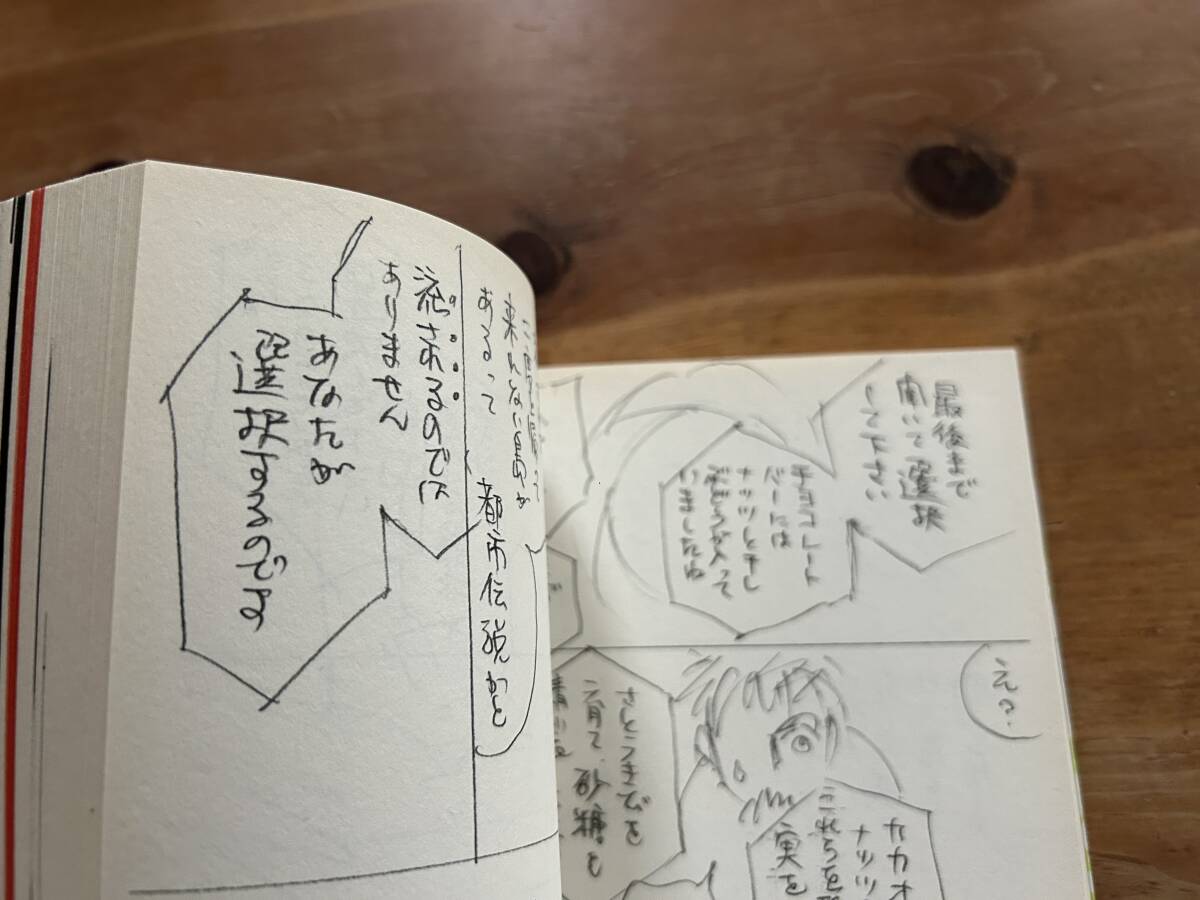 最後まで
聞いて選択
して下さい
チョコレート
バーには
ナッツと干し
ぶどうが入って
いましたね
え?
カカオ
ナッツ
これらを
実を
さとうきびを
育て、砂糖も
来れない島が
あるって
都市伝説かと
流されるのでは
ありません
あなたが
選択するのです